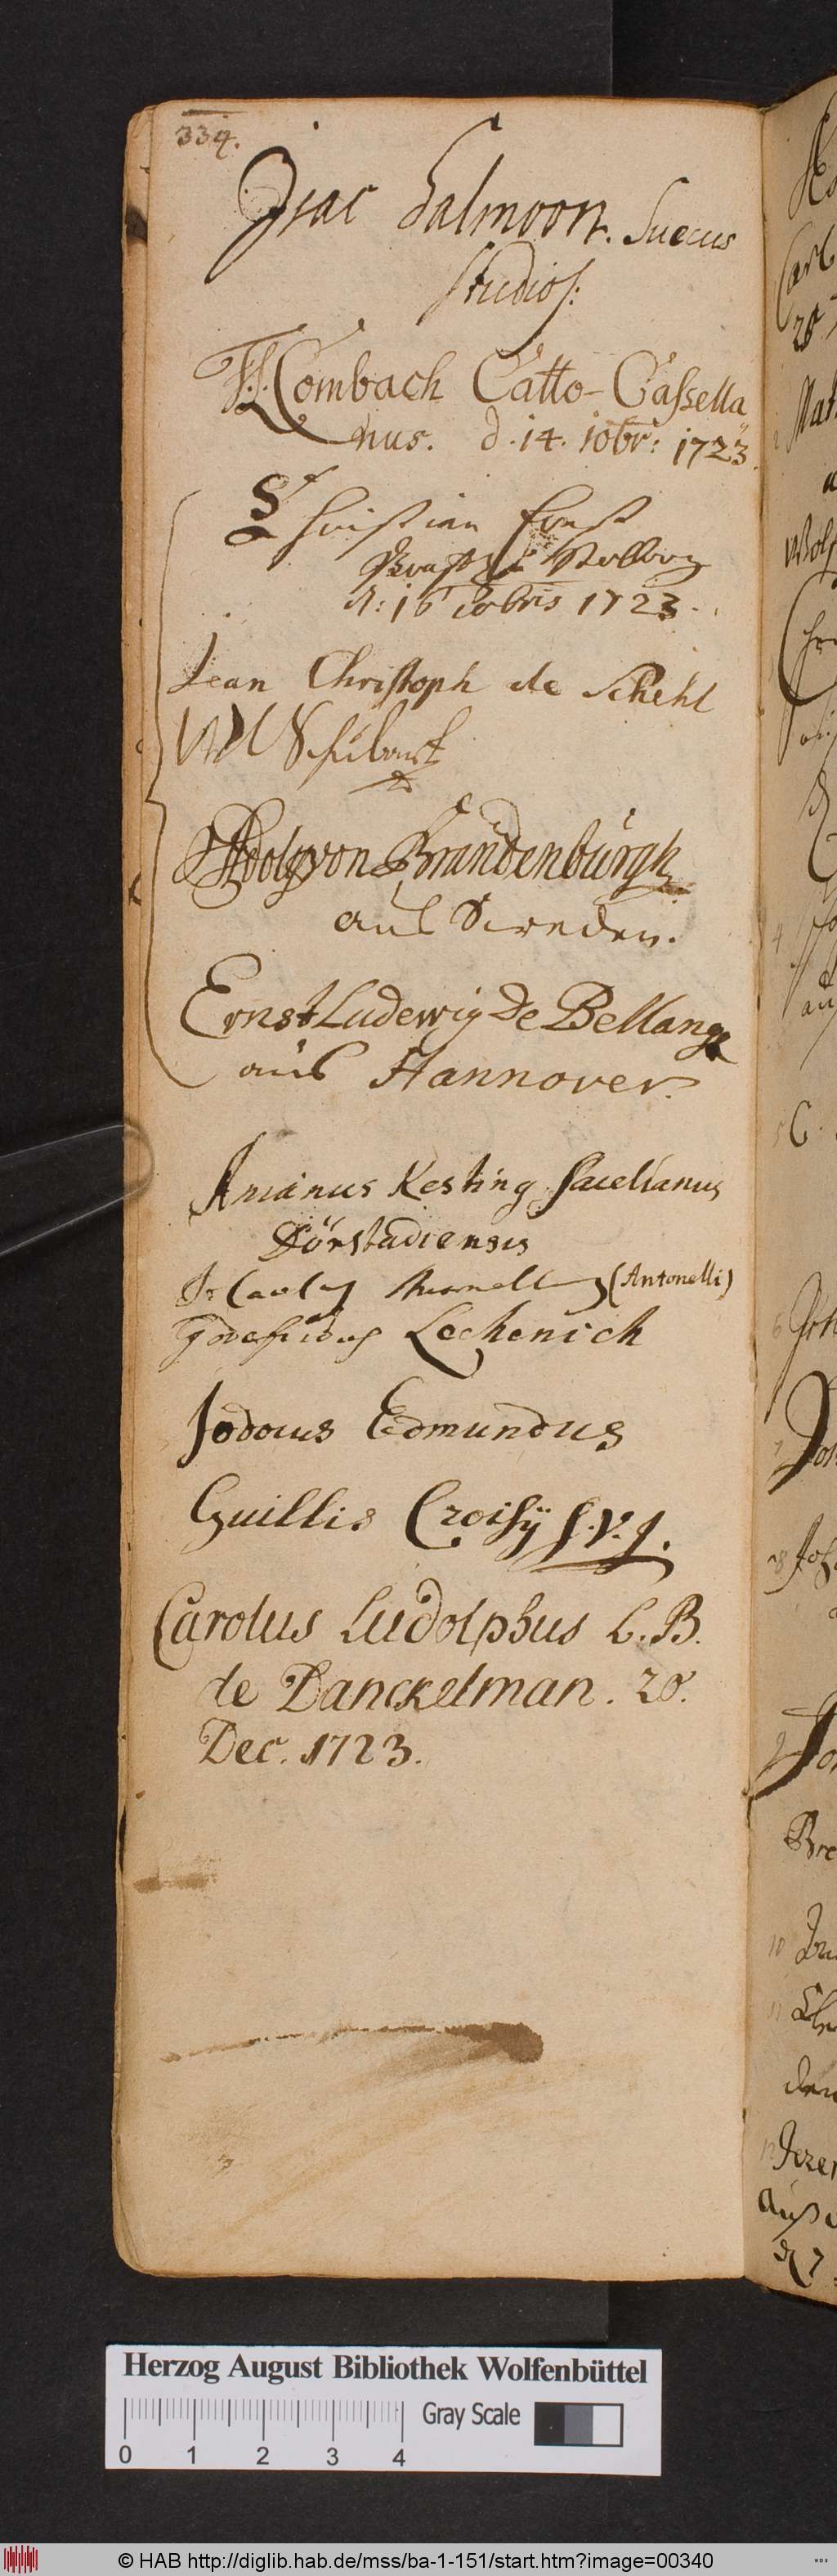 334.
Isac Salmoon. Suecus
Studios:
Combach Catto-Cassella
nus. d. 14. 10br: 1723.
Christian Ernst
Graff zu Stolberg
d: 16 Xobris 1723.
Jean Christoph de Schehl
Schubart
Adolp von Brandenburgh
aus Sweden.
Ernst Ludewig De Bellange
aus Hannover.
Amanus Kesting Sacellanus
Dörstadiensis
(Antonelli)
Godefridus Lechenich
Jodocus Edmundus
Guillis Croisÿ S.V.J.
Carolus Ludolphus L. B.
de Danckelman. 20.
Dec. 1723.
Herzog August Bibliothek Wolfenbüttel
Gray Scale
0 1 2 3 4
© HAB http://diglib.hab.de/mss/ba-1-151/start.htm?image=00340